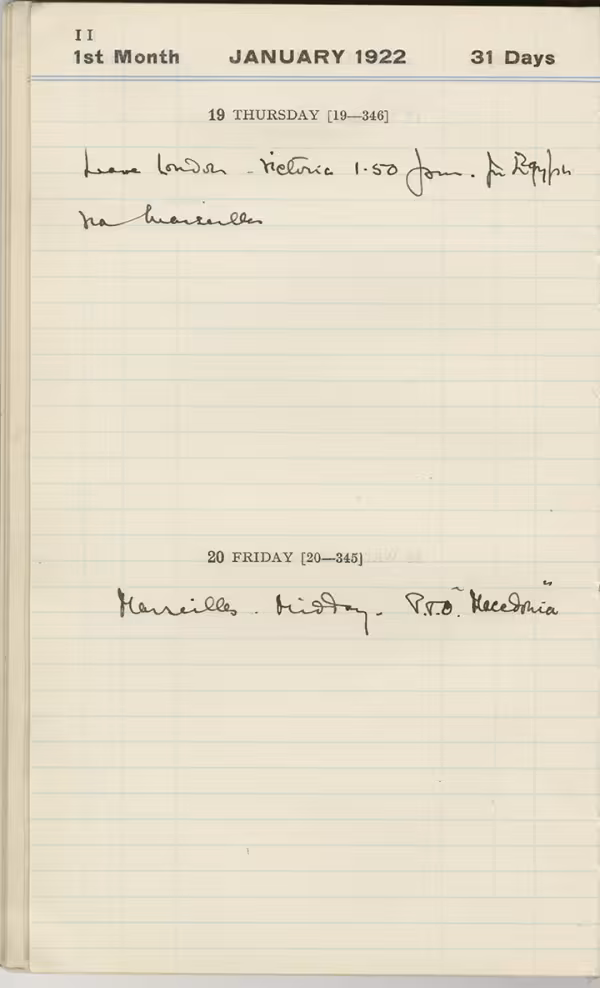 11
1st Month JANUARY 1922 31 Days
19 THURSDAY [19—346]
Leave London - Victoria 1.50 pm. for Egypt
via Marseilles
20 FRIDAY [20—345]
Marseilles. Midday. P.&O. "Macedonia"